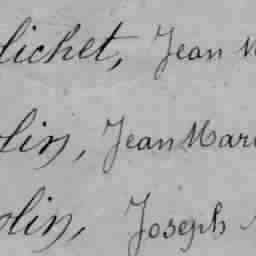 lichet, Jean M
lin, Jean Mar
olin, Joseph